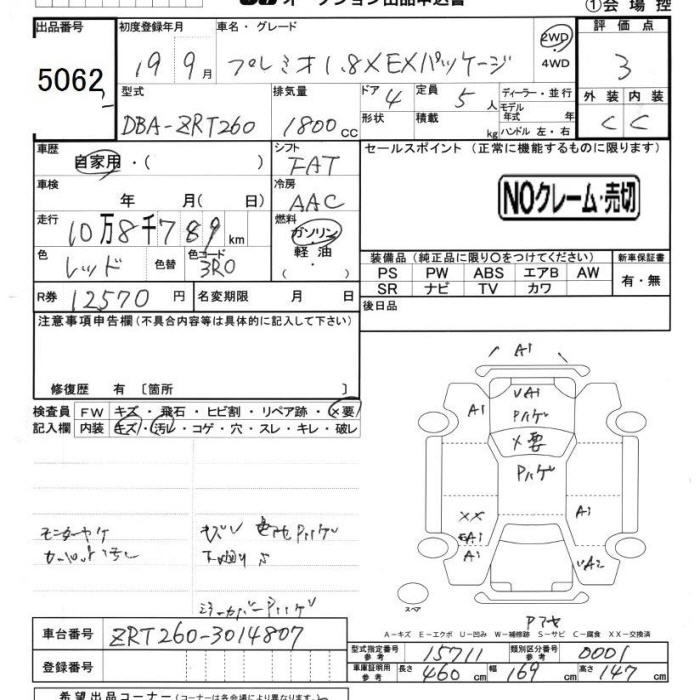 オークション出品申込書
①会場控
出品番号
5062
初度登録年月
19 9月
車名・グレード
プレミオ1.8X EXパッケージ
2WD
4WD
評価点
3
外装 内装
C C
型式
DBA-ZRT260
排気量
1800cc
ドア
4
形状
定員
5人
積載
kg
ディーラー・並行
モデル年式 年
ハンドル 左・右
車歴
自家用・( )
シフト
FAT
車検
年 月( 日)
冷房
AAC
走行
10万8千789km
燃料
ガソリン
軽油
・( )
色
レッド
色替
色コード
3R0
R券
12570円
名変期限 月 日
セールスポイント(正常に機能するものに限ります)
NOクレーム・売切
装備品(純正品に限り○をつけてください)
PS PW ABS エアB AW
SR ナビ TV カワ
新車保証書
有・無
後日品
注意事項申告欄(不具合内容等は具体的に記入して下さい)
修復歴 有〔箇所 〕
検査員 FW キズ・飛石・ヒビ割・リペア跡・×要
記入欄 内装 キズ・汚レ・コゲ・穴・スレ・キレ・破レ
モニターヤケ
下廻りS
ミラーカバーPハゲ
A1
A1
UA1
Pハゲ
×要
Pハゲ
××
A1
A1
A1
UA2
スペア
A-キズ E-エクボ U-凹み W-補修跡 S-サビ C-腐食 XX-交換済
車台番号
ZRT260-3014807
登録番号
型式指定番号 参考
15711
類別区分番号 参考
0001
車庫証明用 参考
長さ 460cm 幅 169cm 高さ 147cm
希望出品コーナー(コーナーは各会場により異なります